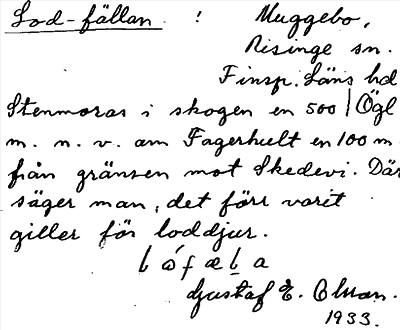 Lod-fällan. ! Muggebo,
Risinge sn.
Finsp. Läns hd
Stenmoras i skogen en 500 | Ögl
m. n. v. om Fagerhult en 100 m
från gränsen mot Skedevi. Där
säger man, det förr varit
giller för loddjur.
Gustaf E. Olsson.
1933.